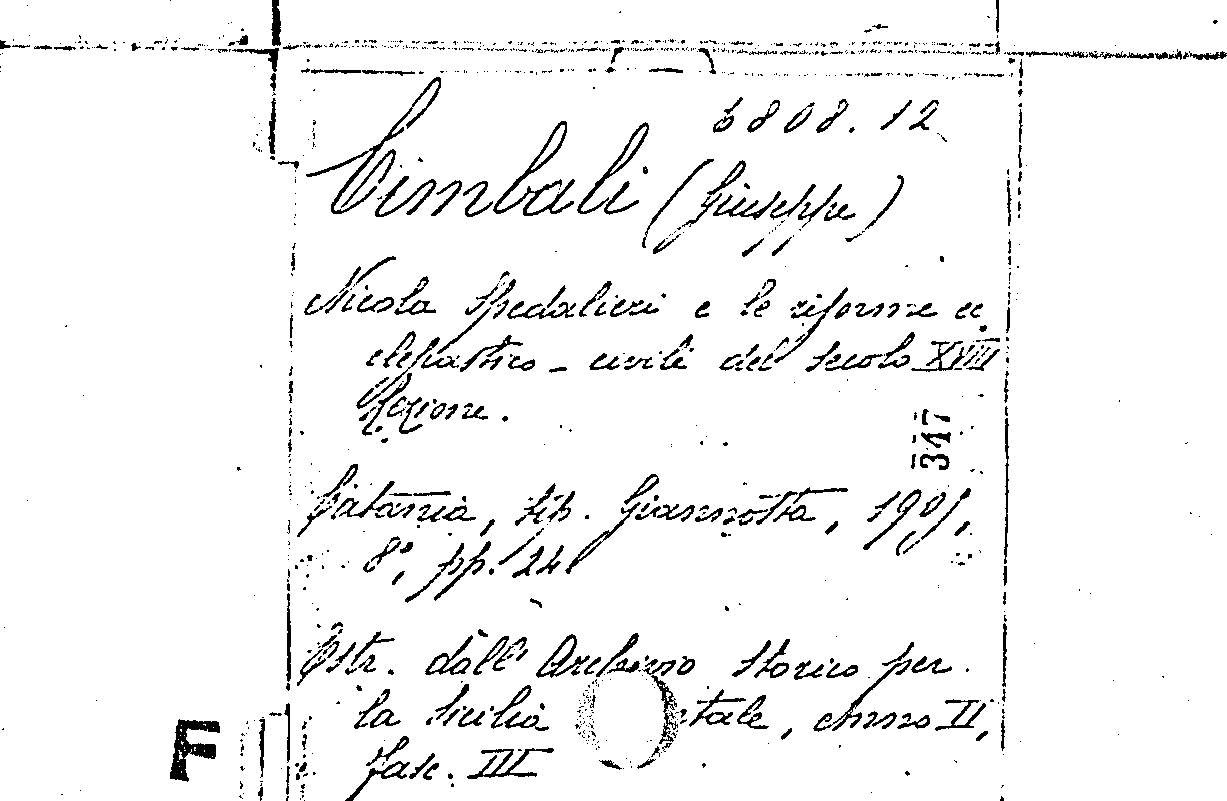 6808.12
Cimbali (Giuseppe)
Nicola Spedalieri e le riforme ec
clesiastico - civili del secolo XVIII
347
Catania, tip. Giannotta, 1905,
8°, pp. 24
Estr. dall' Archivio storico per
la Sicilia tale, Anno II,
fasc. III
F